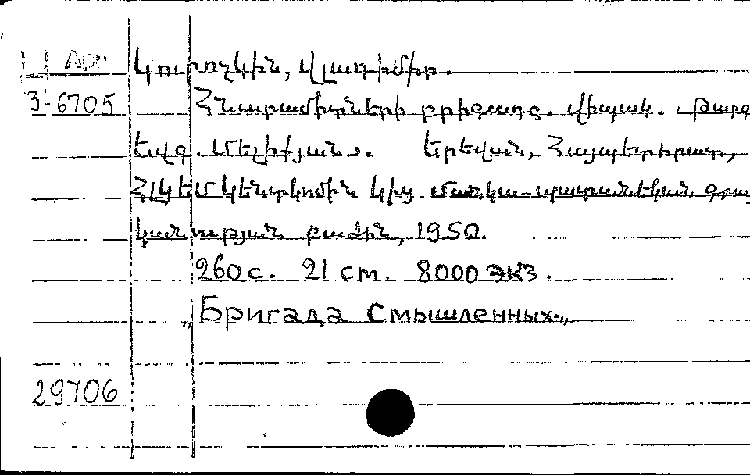 Կուրոչկին, Վլադիմիր.
3-6705 Հնարամիտների բրիգադը. Վիպակ. Թարգ
Եվգ. Մելիքյան: Երեվան, Հայպետհրատ,
ՀԼԿԵՄ Կենտկոմին կից մանկա-պատանեկան գրա
կանության բաժին, 1950.
260 с. 21 cm. 8000 экз.
„Бригада Смышленных„
29706